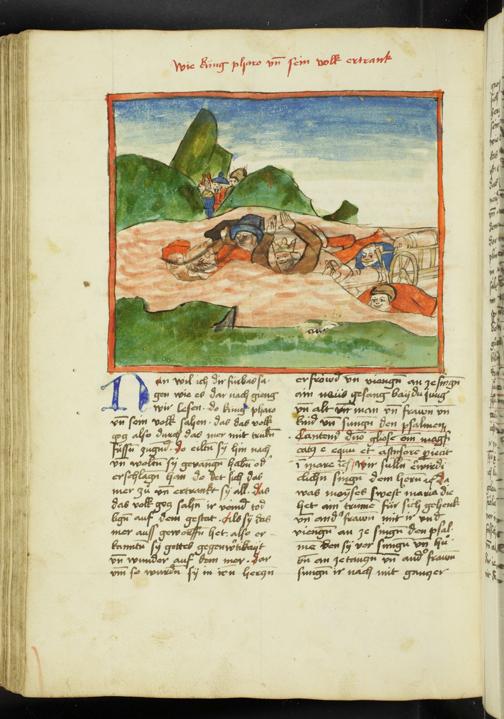 Wie kúng pharo vn̄ sein volk ertrank
Nun wil ich dir fúrbas sa
gen wie es dar nach gieng
wir lesen. do kúng pharo
vn̄ sein volk sahen. das das volk
gog also durch das mer mit trukn
fússn zugend. do eiltn sÿ hin nach
vn̄ woltn sÿ gevangn habn od
erschlagn han do det sich das
mer zů vn̄ ertrankt sÿ all. das
das volk gog sahn ir veind tod
lign auf dem gestat. Als sÿ das
mer auss geworffn het. also er
kantn sÿ gottes gegenwúrtikayt
vn̄ wunder auf dem mer. dar
vm̄ so wurdn sÿ in iren hertzn
erfröwd vn̄ viengn an ze singn
ain news gesang baydu iung
vn̄ alt vir man vn̄ frawn vn̄
kind vn̄ sungn den psalmen
Cantem⁹ dn̄o gl'ose em̄ magīfi
cat⁹ e equū et ascensorē p̄iecit
ī mare wir sulln erwirdi
clichn singn dem hern
was moyses swest maria die
het ain trumē fúr sich gehenkt
vn̄ and⁹ frawn mit ir vnd
viengn an ze singn den psal
me den sÿ vor sungn vn̄ hů
bn an zetantzn vn̄ and⁹ frawn
sungn ir nach mit gantzer